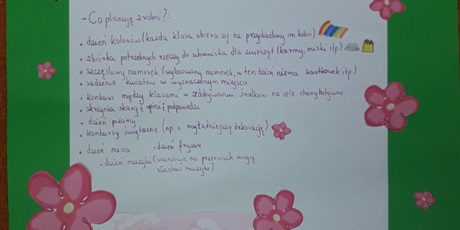 - Co planuję zrobić?:
• dzień kolorów (każda klasa ubiera się na przydzielony im kolor)
• zbiórka potrzebnych rzeczy do schroniska dla zwierząt (karmy, miski itp)
• szczęśliwy numerek (wylosowany numerek, w ten dzień niema kartkówek itp)
• sadzenie kwiatów w wyznaczonym miejscu
• konkurs między klasami - zdobywanie środków na cele charytatywne
• skrzynka skarg, opinii, podpowiedzi
• dzień piżamy
• konkursy świąteczne (np. najładniejszą dekorację)
• dzień misia - dzień fryzur
- dzień muzyki (uczniowie na przerwach mogą
słuchać muzyki)